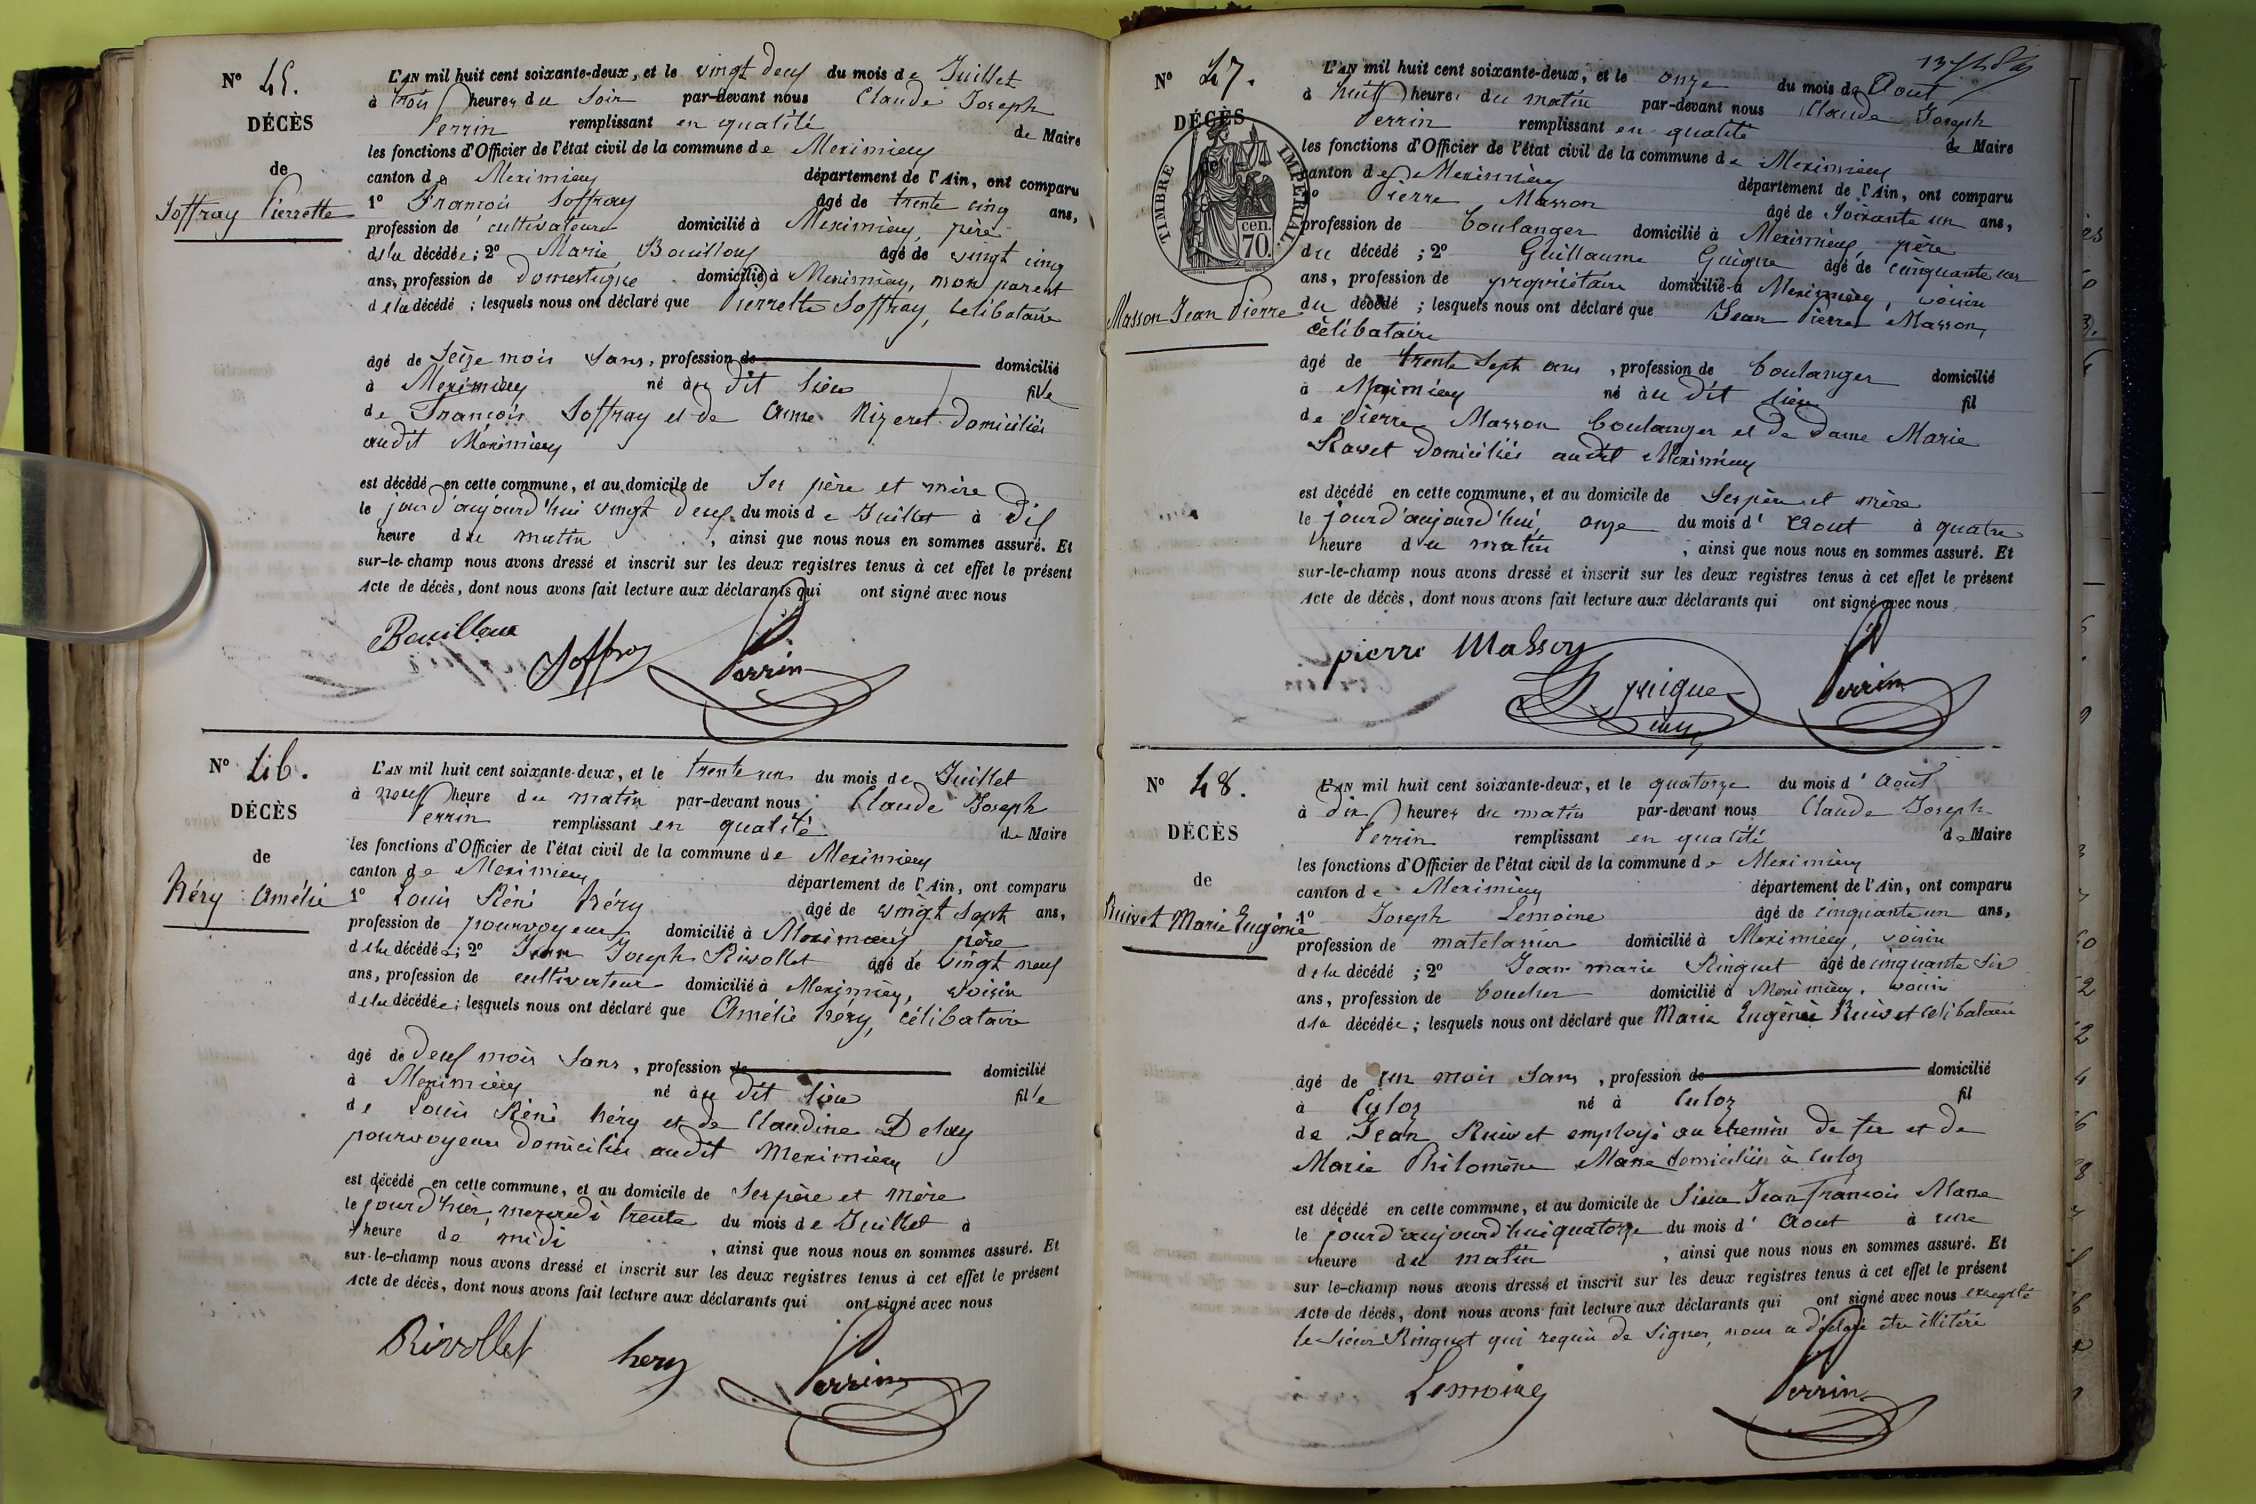 N° 45.
DÉCÈS
de
Joffray Pierrette
L'AN mil huit cent soixante-deux, et le vingt deux du mois de Juillet
à trois heures du Soir par-devant nous Claude Joseph
Perrin remplissant en qualité de Maire
les fonctions d'Officier de l'état civil de la commune de Meximieux
canton de Meximieux département de l'Ain, ont comparu
1° François Joffray âgé de trente cinq ans,
profession de cultivateur domicilié à Meximieux, père
de la décédée; 2° Marie Bouilloux âgé de vingt cinq
ans, profession de domestique domicilié à Meximieux, non parent
de la décédé; lesquels nous ont déclaré que Pierrette Joffray, célibataire
âgé de Seize mois Sans, profession de domicilié
à Meximieux né au dit lieu fille
de François Joffray et de Anne Rizeret domiciliés
audit Meximieux
est décédé en cette commune, et au domicile de Ses père et mère
le jourd'aujourd'hui vingt deux du mois de Juillet à dix
heure du matin, ainsi que nous nous en sommes assuré. Et
sur-le-champ nous avons dressé et inscrit sur les deux registres tenus à cet effet le présent
Acte de décès, dont nous avons fait lecture aux déclarants qui ont signé avec nous
Bouilloux Joffray Perrin
N° 46.
DÉCÈS
de
héry Amélie
L'AN mil huit cent soixante-deux, et le trente un du mois de Juillet
à neuf heure du matin par-devant nous Claude Joseph
Perrin remplissant en qualité de Maire
les fonctions d'Officier de l'état civil de la commune de Meximieux
canton de Meximieux département de l'Ain, ont comparu
1° Louis Réné héry âgé de vingt sept ans,
profession de pourvoyeur domicilié à Meximieux, père
de la décédée; 2° Jean Joseph Rivollet âgé de vingt neuf
ans, profession de cultivateur domicilié à Meximieux, voisin
de la décédée; lesquels nous ont déclaré que Amélie héry, célibataire
âgé de deux mois Sans, profession de domicilié
à Meximieux né au dit lieu fille
de Louis Réné héry et de Claudine Delay
pourvoyeur domiciliés audit Meximieux
est décédé en cette commune, et au domicile de Ses père et mère
le jourd'hier, mercredi trente du mois de Juillet à
heure de midi, ainsi que nous nous en sommes assuré. Et
sur-le-champ nous avons dressé et inscrit sur les deux registres tenus à cet effet le présent
Acte de décès, dont nous avons fait lecture aux déclarants qui ont signé avec nous
Rivollet hery Perrin
N° 47.
DÉCÈS
de
TIMBRE IMPÉRIAL
70 cen.
Masson Jean Pierre
L'AN mil huit cent soixante-deux, et le onze du mois de Aout
à huit heures du matin par-devant nous Claude Joseph
Perrin remplissant en qualité de Maire
les fonctions d'Officier de l'état civil de la commune de Meximieux
canton de Meximieux département de l'Ain, ont comparu
1° Pierre Masson âgé de Soixante un ans,
profession de boulanger domicilié à Meximieux, père
du décédé; 2° Guillaume Guigue âgé de cinquante un
ans, profession de propriétaire domicilié à Meximieux, voisin
du décédé; lesquels nous ont déclaré que Jean Pierre Masson,
célibataire
âgé de trente Sept ans, profession de boulanger domicilié
à Meximieux né au dit lieu fil
de Pierre Masson boulanger et de dame Marie
Ravet domiciliés audit Meximieux
est décédé en cette commune, et au domicile de Ses père et mère
le jourd'aujourd'hui, onze du mois d'Aout à quatre
heure du matin, ainsi que nous nous en sommes assuré. Et
sur-le-champ nous avons dressé et inscrit sur les deux registres tenus à cet effet le présent
Acte de décès, dont nous avons fait lecture aux déclarants qui ont signé avec nous
pierre Masson Guigue Perrin
N° 48.
DÉCÈS
de
Ruivet Marie Eugénie
L'AN mil huit cent soixante-deux, et le quatorze du mois d'Aout
à dix heures du matin par-devant nous Claude Joseph
Perrin remplissant en qualité de Maire
les fonctions d'Officier de l'état civil de la commune de Meximieux
canton de Meximieux département de l'Ain, ont comparu
1° Joseph Lemoine âgé de cinquante un ans,
profession de matelassier domicilié à Meximieux, voisin
de la décédé; 2° Jean marie Ringuet âgé de cinquante Six
ans, profession de boucher domicilié à Meximieux, voisin
de la décédée; lesquels nous ont déclaré que Marie Eugénie Ruivet célibataire
âgé de un mois Sans, profession de domicilié
à Culoz né à Culoz fil
de Jean Ruivet employé au chemin de fer et de
Marie Philomène Mane domiciliés à Culoz
est décédé en cette commune, et au domicile de Sieur Jean François Mane
le jourd'aujourd'hui quatorze du mois d'Aout à une
heure du matin, ainsi que nous nous en sommes assuré. Et
sur le-champ nous avons dressé et inscrit sur les deux registres tenus à cet effet le présent
Acte de décès, dont nous avons fait lecture aux déclarants qui ont signé avec nous excepté
le Sieur Ringuet qui requis de signer, nous a déclaré être illitéré
Lemoine Perrin